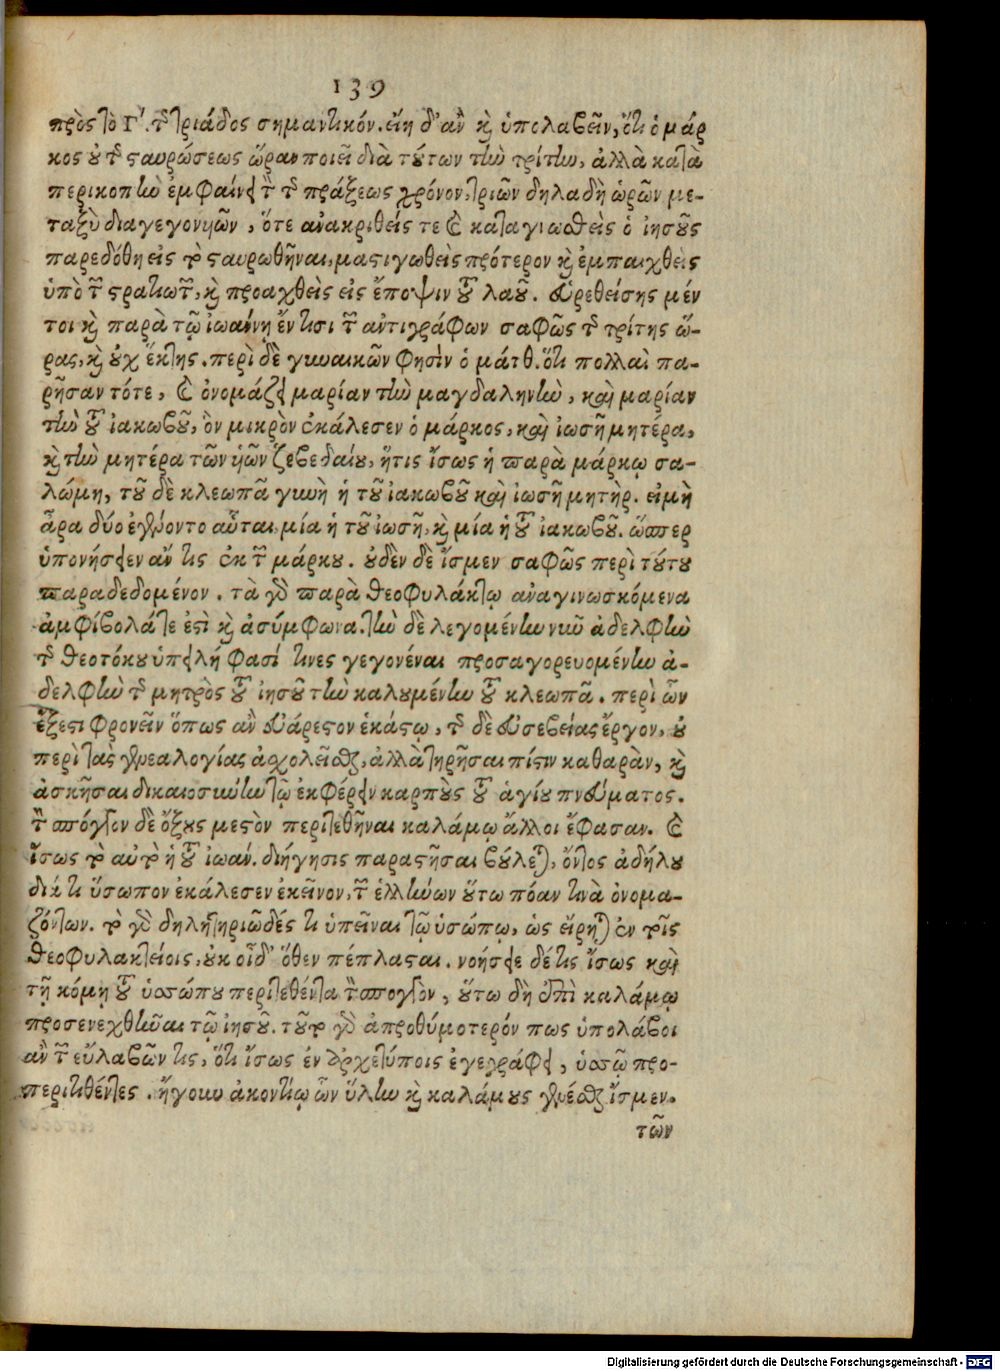 139
πρὸς τὸ Γʹ. τῆς τριάδος σημαντικόν. εἴη δ' ἂν καὶ ὑπολαβεῖν, ὅτι ὁ μάρ
κος οὐ τῆς σταυρώσεως ὥραν ποιεῖ διὰ τούτων τὴν τρίτην, ἀλλὰ κατὰ
περικοπὴν ἐμφαίνει τὸν τῆς πράξεως χρόνον, τριῶν δηλαδὴ ὡρῶν με-
ταξὺ διαγεγονυιῶν, ὅτε ἀνακριθείς τε καὶ καταγνωσθεὶς ὁ ἰησοῦς
παρεδόθη εἰς τὸ σταυρωθῆναι, μαστιγωθεὶς πρότερον καὶ ἐμπαιχθεὶς
ὑπὸ τῶν στρατιωτῶν, καὶ προαχθεὶς εἰς ἔποψιν τοῦ λαοῦ. εὑρεθείσης μέν
τοι καὶ παρὰ τῷ ἰωάννῃ ἔν τισι τῶν ἀντιγράφων σαφῶς τῆς τρίτης ὥ-
ρας, καὶ οὐχ ἕκτης. περὶ δὲ γυναικῶν φησὶν ὁ μάτθ. ὅτι πολλαὶ πα-
ρῆσαν τότε, καὶ ὀνομάζει μαρίαν τὴν μαγδαληνὴν, καὶ μαρίαν
τὴν τοῦ ἰακωβοῦ, ὃν μικρὸν ἐκάλεσεν ὁ μάρκος, καὶ ἰωσῆ μητέρα,
καὶ τὴν μητέρα τῶν υἱῶν ζεβεδαίου, ἥτις ἴσως ἡ παρὰ μάρκῳ σα-
λώμη, τοῦ δὲ κλεωπᾶ γυνὴ ἡ τοῦ ἰακωβοῦ καὶ ἰωσῆ μητήρ. εἰ μὴ
ἆρα δύο ἐγένοντο αὗται, μία ἡ τοῦ ἰωσῆ, καὶ μία ἡ τοῦ ἰακωβοῦ. ὥσπερ
ὑπονήσειεν ἄν τις ἐκ τοῦ μάρκου. οὐδὲν δὲ ἴσμεν σαφῶς περὶ τούτου
παραδεδομένον. τὰ γὰρ παρὰ θεοφυλάκτῳ ἀναγινωσκόμενα
ἀμφίβολά τε ἐστὶ καὶ ἀσύμφωνα. τὴν δὲ λεγομένην νῦν ἀδελφὴν
τῆς θεοτόκου ὑπειλή φασί τινες γεγονέναι προσαγορευομένην ἀ-
δελφὴν τῆς μητρὸς τοῦ ἰησοῦ τὴν καλουμένην τοῦ κλεωπᾶ. περὶ ὧν
ἔξεστι φρονεῖν ὅπως ἂν εὐάρεστον ἑκάστῳ, τῆς δὲ εὐσεβείας ἔργον, οὐ
περὶ τὰς γενεαλογίας ἀσχολεῖσθαι, ἀλλὰ τηρῆσαι πίστιν καθαρὰν, καὶ
ἀσκῆσαι δικαιοσύνην τῷ ἐκφέρειν καρποὺς τοῦ ἁγίου πνεύματος.
τὸν σπόγγον δὲ ὄξους μεστὸν περιτεθῆναι καλάμῳ ἄλλοι ἔφασαν. καὶ
ἴσως τὸ αὐτὸ ἡ τοῦ ἰωάν. διήγησις παραστῆσαι βούλεται, ὄντος ἀδήλου
διά τι ὕσωπον ἐκάλεσεν ἐκεῖνον, τῶν ἑλλήνων οὕτω πόαν τινὰ ὀνομα-
ζόντων. τὸ γὰρ δηλητηριῶδές τι ὑπεῖναι τῷ ὑσώπῳ, ὡς εἴρηται ἐν τοῖς
θεοφυλακτείοις, οὐκ οἶδ' ὅθεν πέπλασται. νοήσειε δέ τις ἴσως καὶ
τῇ κόμῃ τοῦ ὑσσώπου περιτεθέντα τὸν σπόγγον, οὕτω δὴ ἐπὶ καλάμῳ
προσενεχθῆναι τῷ ἰησοῦ. τοῦτο γὰρ ἀπροθύμοτερόν πως ὑπολάβοι
ἂν τῶν εὐλαβῶν τις, ὅτι ἴσως ἐν ἀρχετύποις ἐγεγράφει, ὑσσῷ προ-
περιτιθέντες. ἤγουν ἀκοντίῳ ὧν ὕλην καὶ καλάμους γενέσθαι ἴσμεν.
τῶν
Digitalisierung gefördert durch die Deutsche Forschungsgemeinschaft - DFG